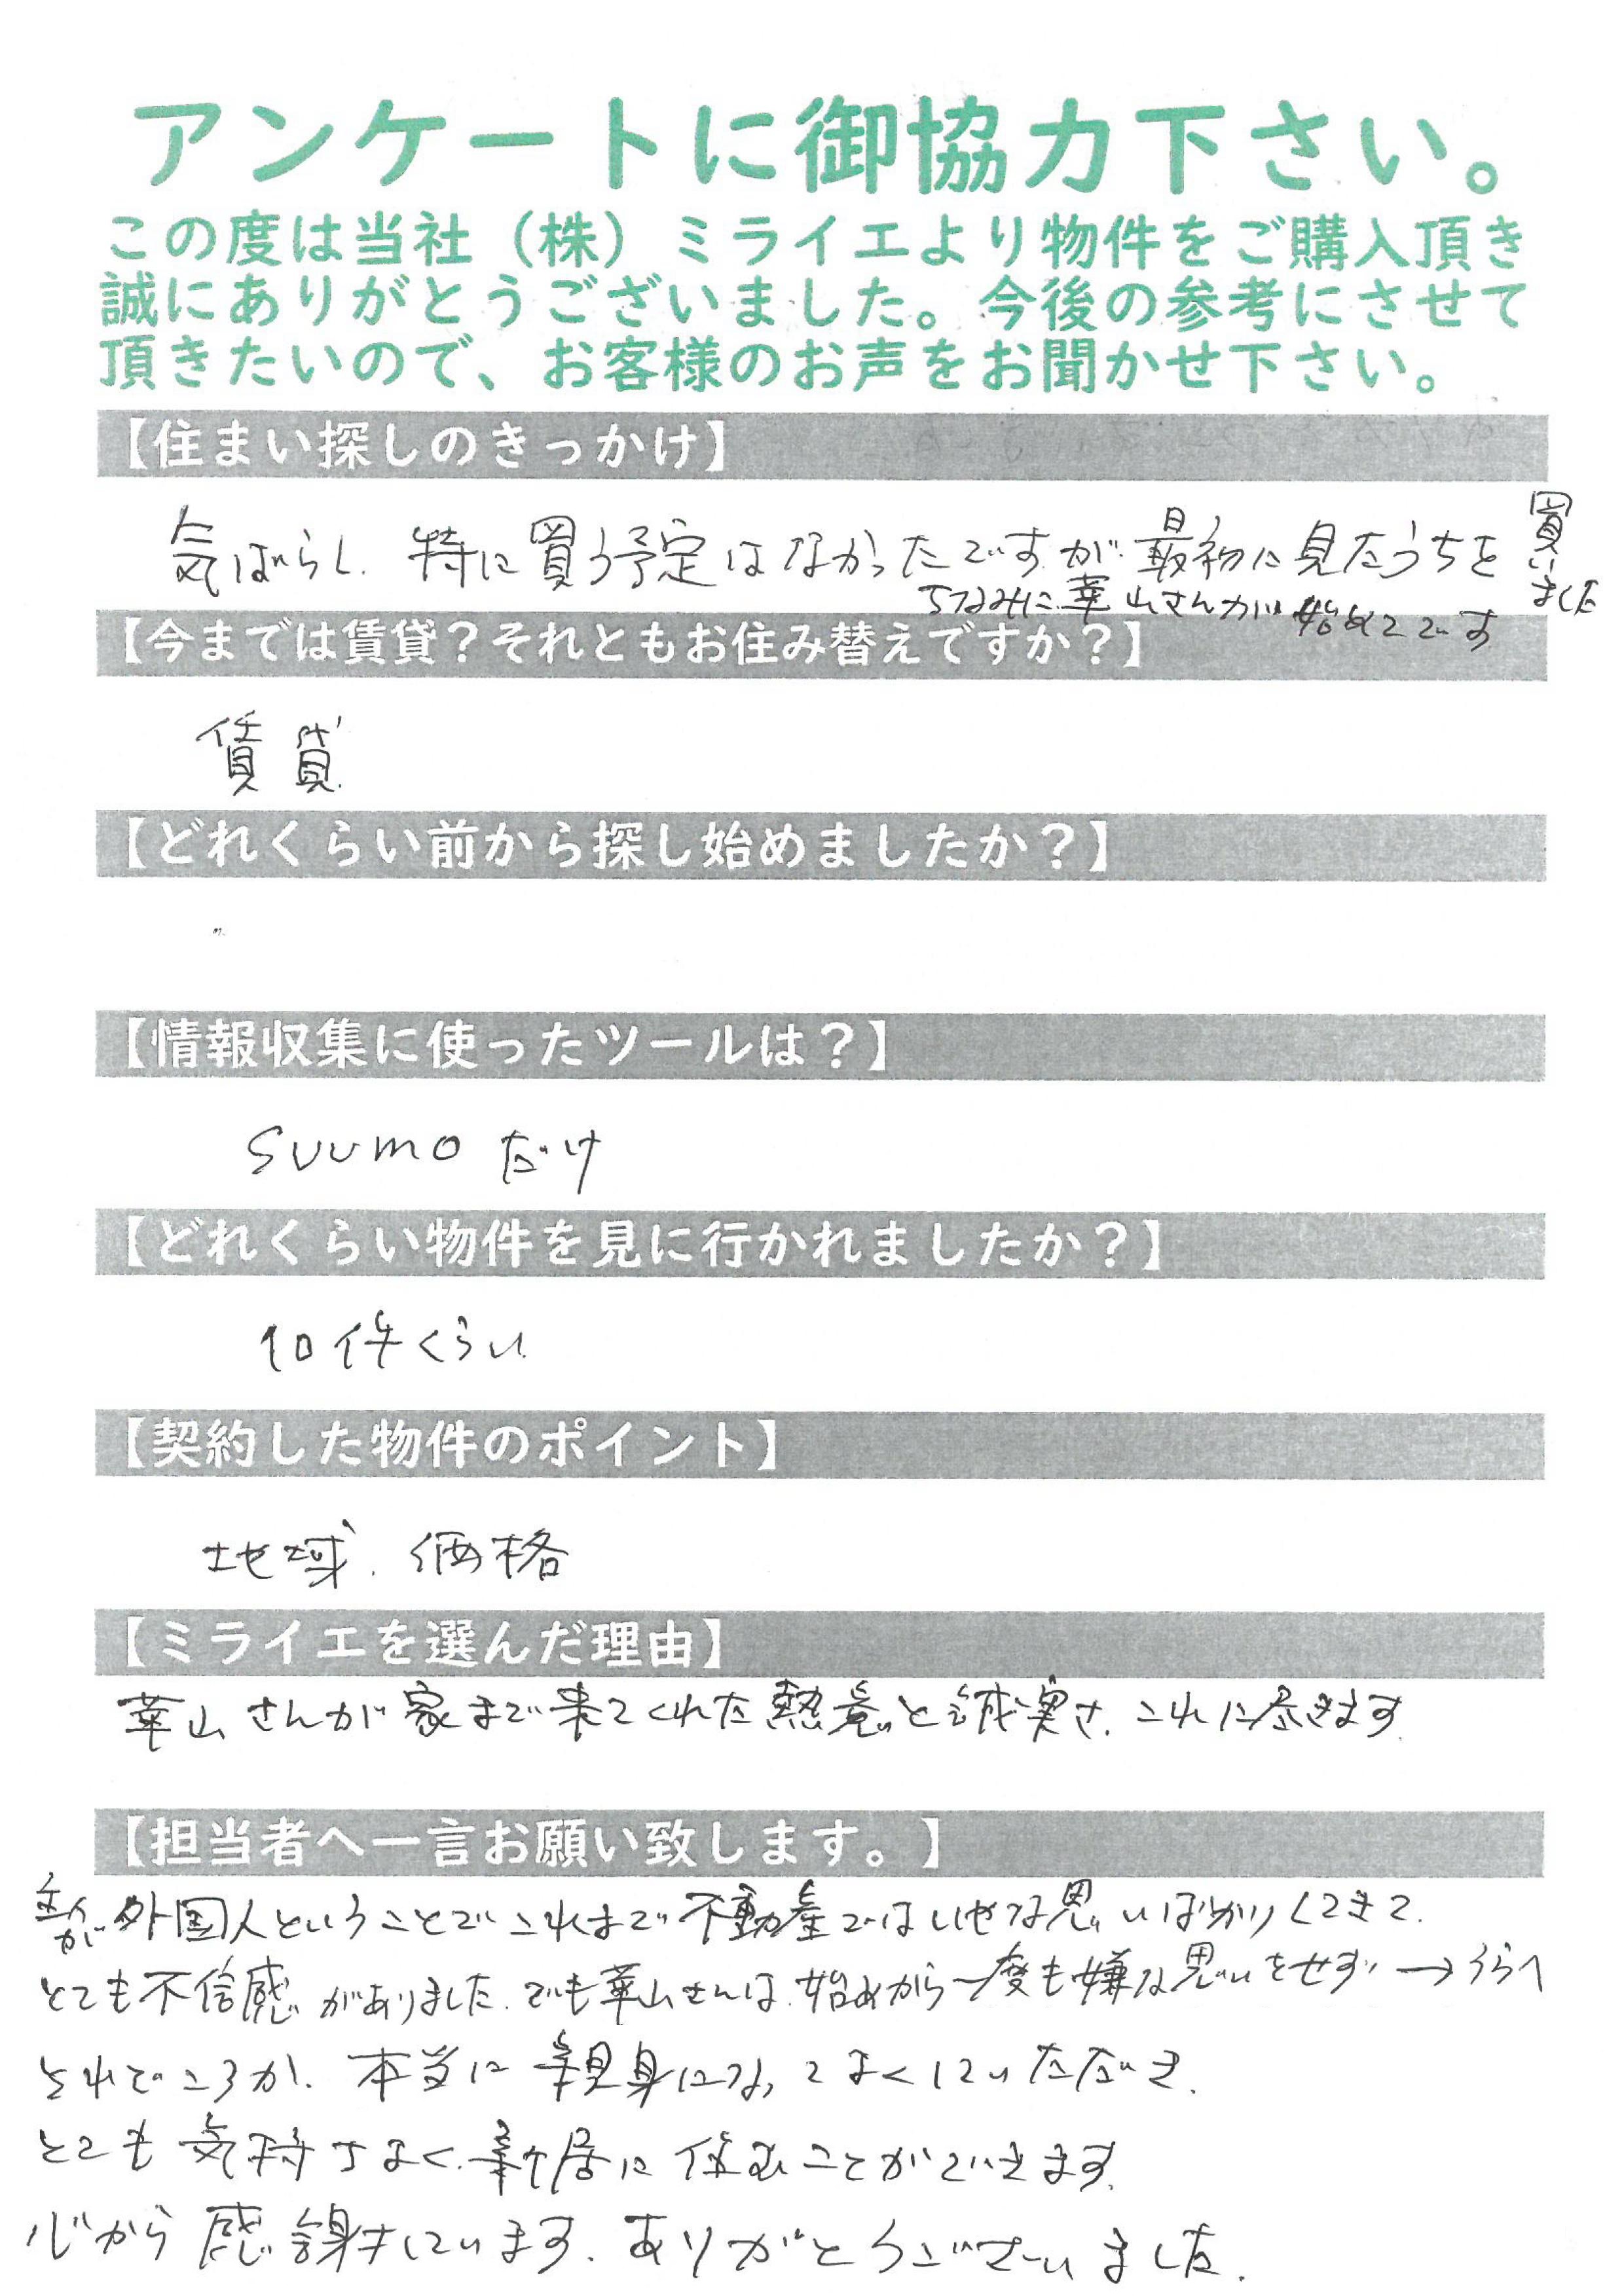 アンケートに御協力下さい。
この度は当社（株）ミライエより物件をご購入頂き
誠にありがとうございました。今後の参考にさせて
頂きたいので、お客様のお声をお聞かせ下さい。
【住まい探しのきっかけ】
気ばらし. 特に買う予定はなかったですが.最初に見たうちを買いました
ちなみに華山さんが始めてです
【今までは賃貸？それともお住み替えですか？】
賃貸
【どれくらい前から探し始めましたか？】
【情報収集に使ったツールは？】
SUUMO だけ
【どれくらい物件を見に行かれましたか？】
10件くらい
【契約した物件のポイント】
地域. 価格
【ミライエを選んだ理由】
華山さんが家まで来てくれた熱意と誠実さ. これに尽きます.
【担当者へ一言お願い致します。】
主人が外国人ということでこれまで不動産ではいやな思いばかりしてきて.
とても不信感がありました. でも華山さんは.始めから一度も嫌な思いをせず → うらへ
それどころか. 本当に親身になってよくしていただき.
とても気持ちよく.新居に住むことができます.
心から感謝しています. ありがとうございました.